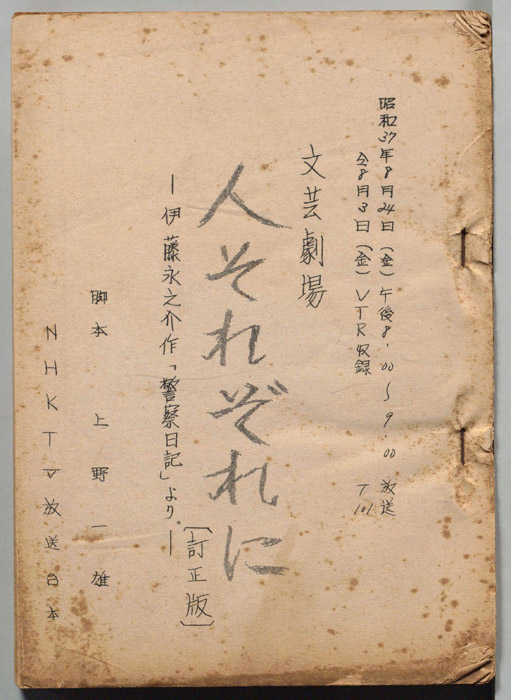 昭和37年8月24日(金)午後8.00〜9.00放送
仝8月3日(金)VTR収録 T101
文芸劇場
人それぞれに
[訂正版]
—伊藤永之介作「警察日記」より。—
脚本 上野一雄
NHKTV放送台本